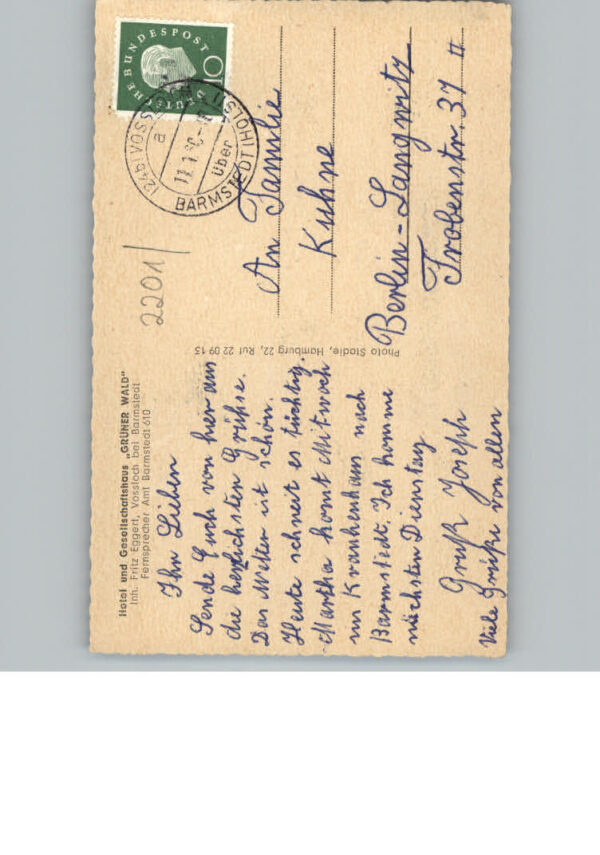 Hotel und Gesellschaftshaus „GRÜNER WALD"
Inh. Fritz Eggert, Vossloch bei Barmstedt
Fernsprecher Amt Barmstedt 610
Ihr Lieben
Sende Euch von hier aus
die herzlichsten Grühse.
Das Wetter ist schön.
Heute schneit es tüchtig.
Martha komt Mitwoch
im Krankenhaus nach
Barmstedt. Ich komme
nächsten Dienstag
Gruß Joseph
Viele Grüße von allen
Photo Studie, Hamburg 22, Ruf 22 09 15
2201/
DEUTSCHE BUNDESPOST
10
(24b) VOSSLOCH (HOLST)
a
über
BARMSTEDT
An Familie
Kuhne
Berlin-Langwitz
Frobenstr. 37 II